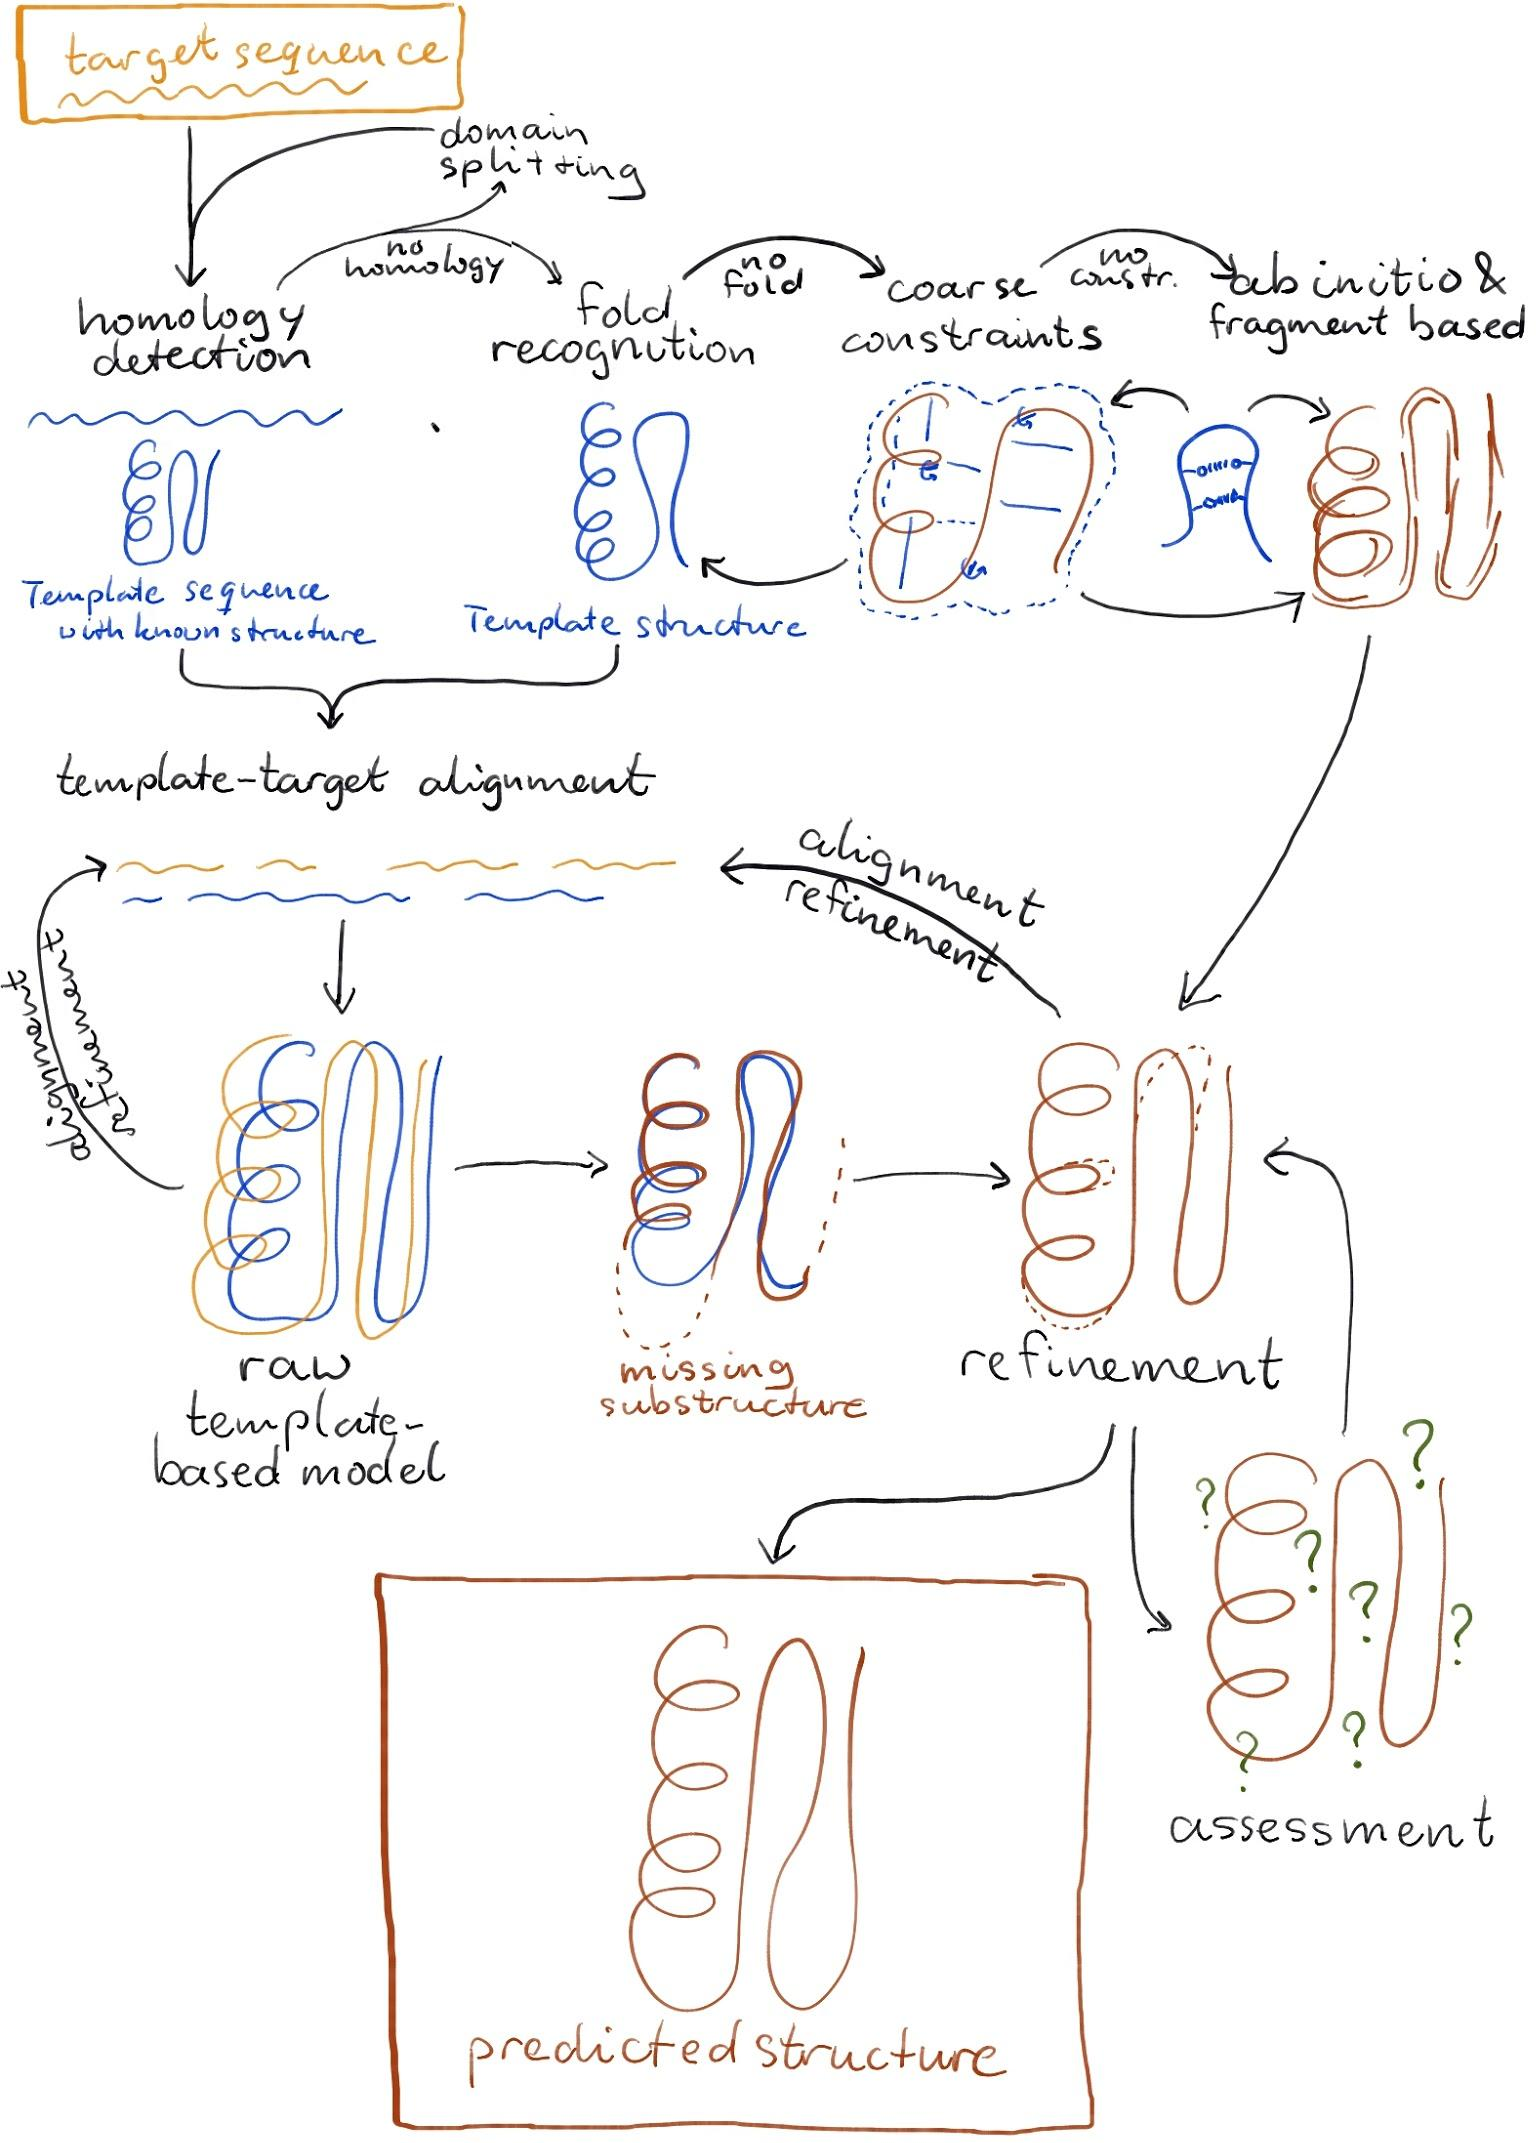 target sequence
domain
splitting
no
homology
no
fold
no
constr.
homology
detection
fold
recognition
coarse
constraints
ab initio &
fragment based
Template sequence
with known structure
Template structure
template-target alignment
alignment
refinement
alignment
refinement
raw
template-
based model
missing
substructure
refinement
assessment
predicted structure